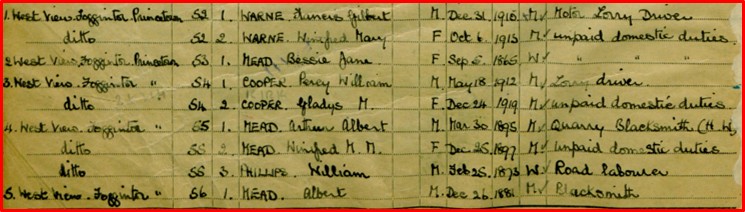 1. West View. Foggintor. Princetown 52 1. WARNE. Francis Gilbert M. Dec. 31. 1910 M Motor Lorry Driver
ditto 52 2 WARNE. Winifred Mary F Oct 6. 1913 M unpaid domestic duties.
2. West View. Foggintor. Princetown 53 1. MEAD. Bessie Jane. F Sep 5. 1865 W " " "
3. West View. Foggintor " 54 1. COOPER. Percy William M. May 18. 1912 M Lorry driver.
ditto 54 2. COOPER. Gladys M. F. Dec 24. 1919 M unpaid domestic duties.
4. West View. Foggintor " 55 1. MEAD. Arthur Albert M. Mar 30. 1895 M Quarry Blacksmith (H.W.)
ditto 55 2. MEAD. Winifred M. M. F Dec 25. 1897 M unpaid domestic duties
ditto 55 3. PHILLIPS. William M. Feb 25. 1873 W Road labourer
5. West View. Foggintor " 56 1. MEAD. Albert M. Dec 26. 1881 M Blacksmith